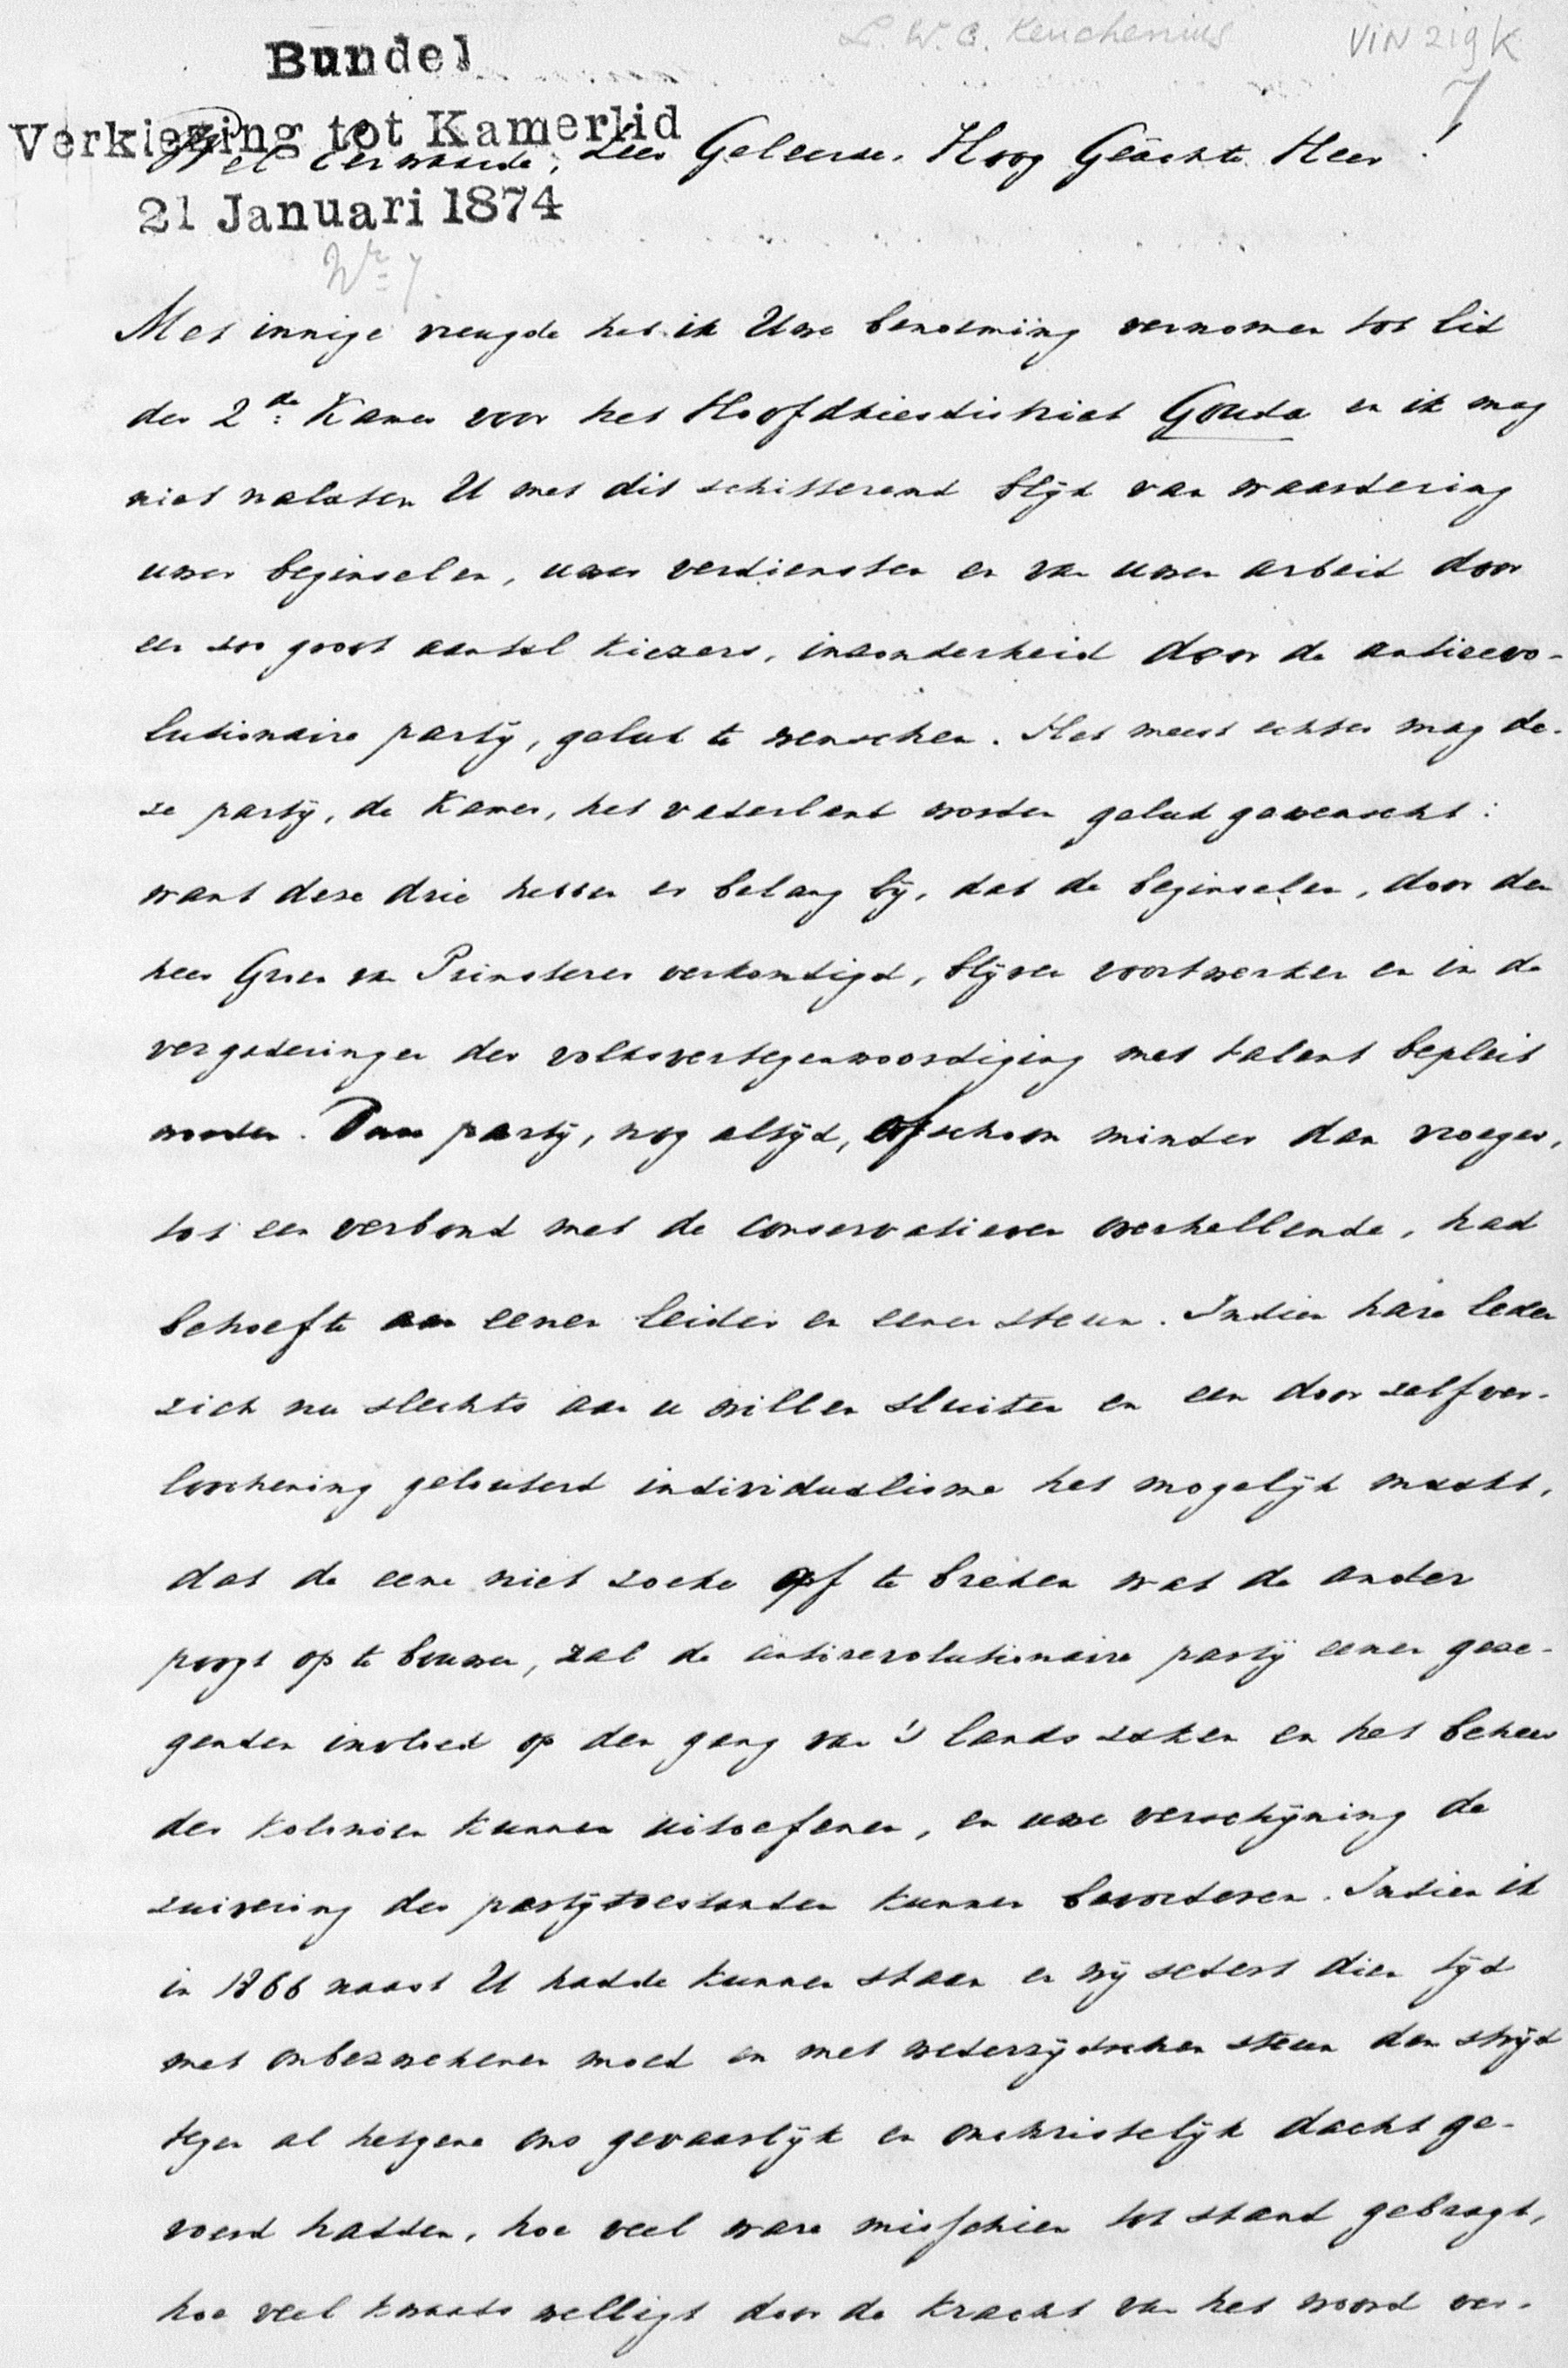 L. W. C. Keuchenius
VIN 219k
7
Bundel
Verkiezing tot Kamerlid
21 Januari 1874
Nr 7.
Wel Eerwaarde, Zeer Geleerde, Hoog Geachte Heer!
Met innige vreugde heb ik Uwe benoeming vernomen tot lid
der 2de Kamer voor het Hoofdkiesdistrict Gouda en ik mag
niet nalaten U met dit schitterend blijk van waardering
uwer beginselen, uwer verdiensten en van uwen arbeid door
een zoo groot aantal kiezers, inzonderheid door de antirevo-
lutionaire partij, geluk te wenschen. Het meest echter mag de-
ze partij, de Kamer, het vaderland worden geluk gewenscht:
want deze drie hebben er belang bij, dat de beginselen, door den
heer Groen van Prinsterer verkondigd, blijven voortwerken en in de
vergaderingen der volksvertegenwoordiging met talent bepleit
worden. Onze partij, nog altijd, ofschoon minder dan vroeger,
tot een verbond met de conservatieven overhellende, had
behoefte aan eenen leider en eenen steun. Indien hare leden
zich nu slechts aan u willen sluiten en een door zelfver-
loochening gelouterd individualisme het mogelijk maakt,
dat de eene niet zoeke af te breken wat de ander
poogt op te bouwen, zal de antirevolutionaire partij eenen geze-
genden invloed op den gang van 's lands zaken en het beheer
der kolonien kunnen uitoefenen, en uwe verschijning de
zuivering der partijtoestanden kunnen bevorderen. Indien ik
in 1866 naast U hadde kunnen staan en wij sedert dien tijd
met onbezweken moed en met wederzijdschen steun den strijd
tegen al hetgene ons gevaarlijk en onchristelijk dacht ge-
voerd hadden, hoe veel ware misschien tot stand gebragt,
hoe veel kwaads welligt door de kracht van het woord ver-